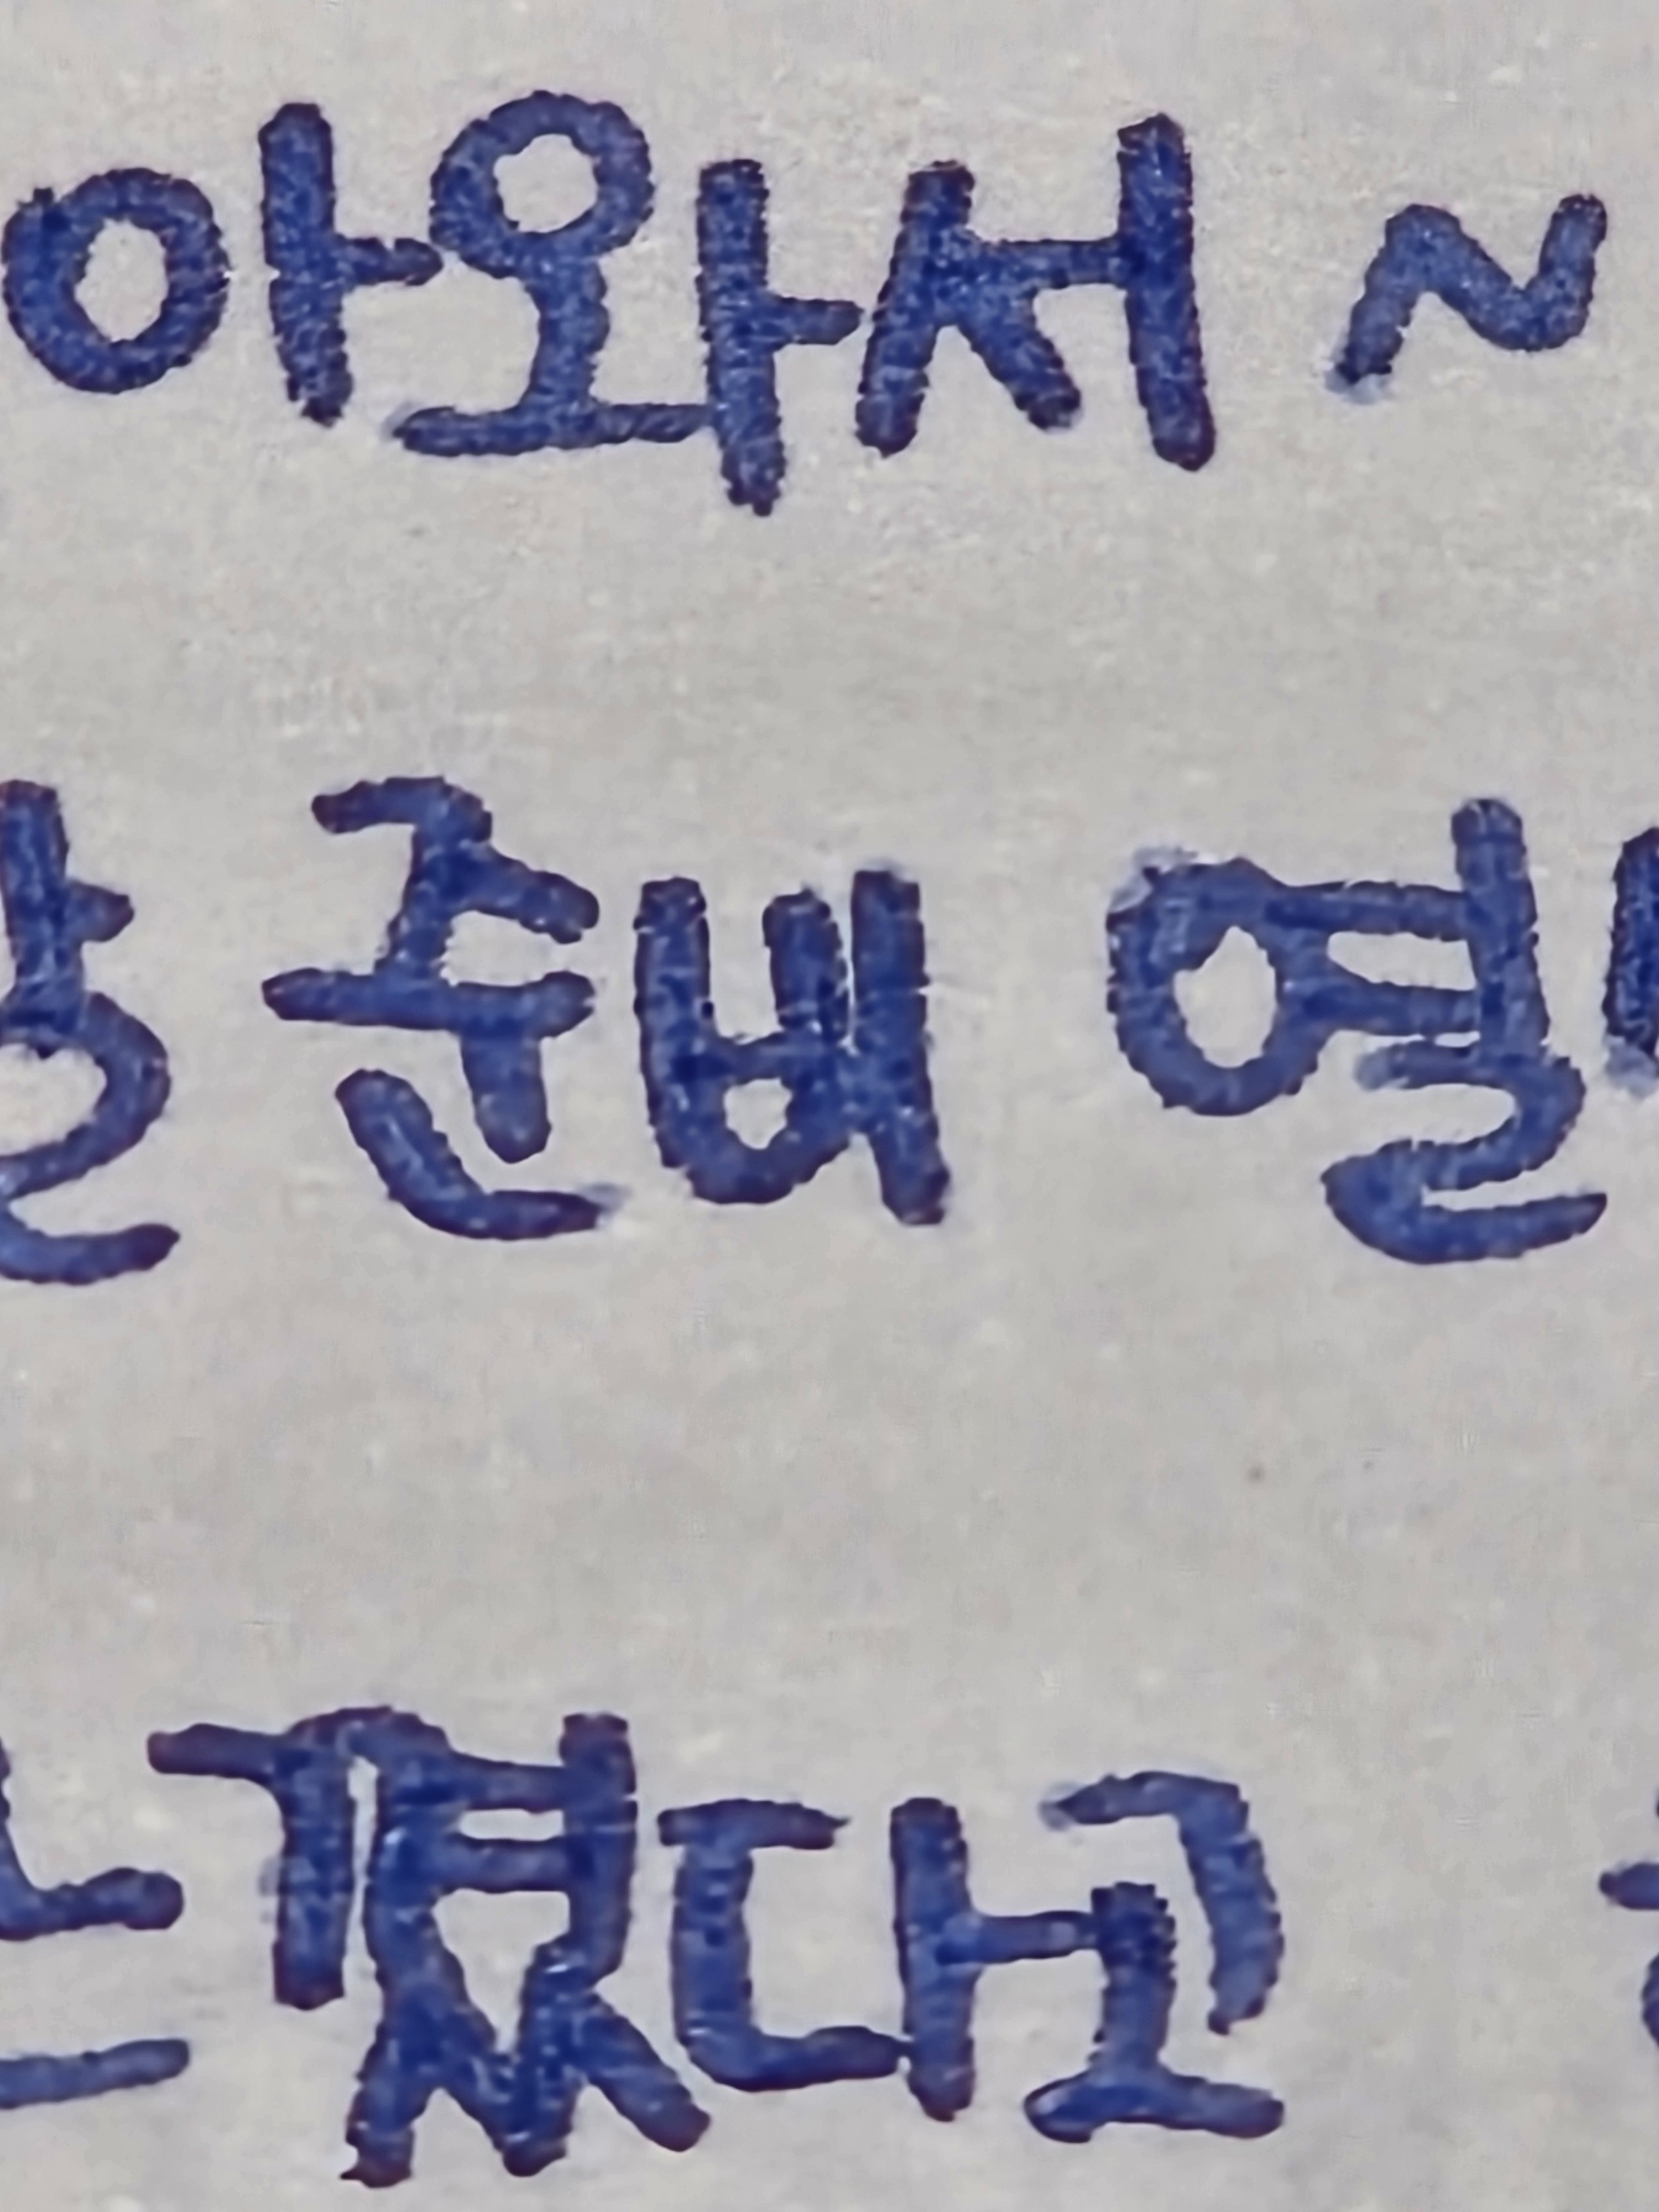 아와서 ~
준비 열
켰다고